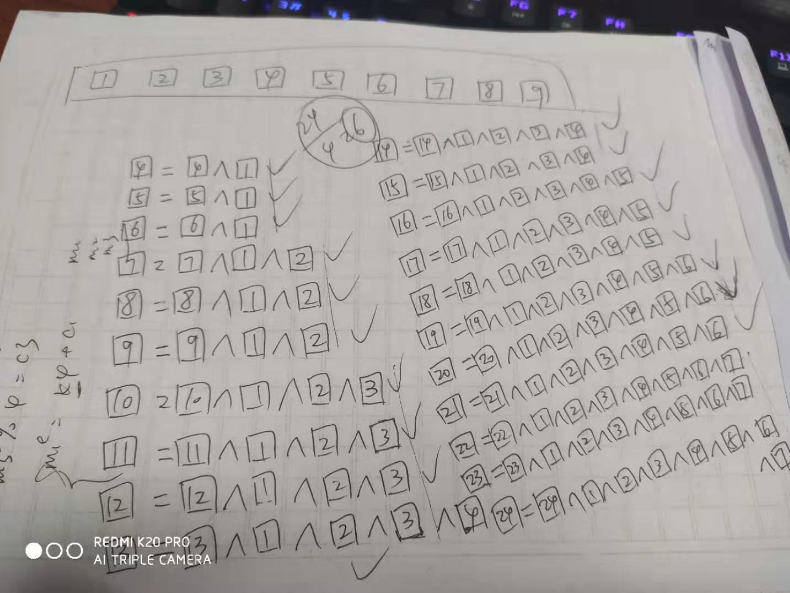 F6 F7
1 2 3 4 5 6 7 8 9
24 4 26
4 = 4 ∧ 1 ✓
5 = 5 ∧ 1 ✓
6 = 6 ∧ 1 ✓
7 = 7 ∧ 1 ∧ 2 ✓
8 = 8 ∧ 1 ∧ 2 ✓
9 = 9 ∧ 1 ∧ 2 ✓
10 = 10 ∧ 1 ∧ 2 ∧ 3 ✓
11 = 11 ∧ 1 ∧ 2 ∧ 3 ✓
12 = 12 ∧ 1 ∧ 2 ∧ 3 ✓
= 3 ∧ 1 ∧ 2 ∧ 3 ∧ 4 ✓
14 = 14 ∧ 1 ∧ 2 ∧ 3 ∧ 4 ✓
15 = 15 ∧ 1 ∧ 2 ∧ 3 ∧ 4 ✓
16 = 16 ∧ 1 ∧ 2 ∧ 3 ∧ 4 ∧ 5 ✓
17 = 17 ∧ 1 ∧ 2 ∧ 3 ∧ 4 ∧ 5 ✓
18 = 18 ∧ 1 ∧ 2 ∧ 3 ∧ 4 ∧ 5 ✓
19 = 19 ∧ 1 ∧ 2 ∧ 3 ∧ 4 ∧ 5 ∧ 6 ✓
20 = 20 ∧ 1 ∧ 2 ∧ 3 ∧ 4 ∧ 5 ∧ 6 ✓
21 = 21 ∧ 1 ∧ 2 ∧ 3 ∧ 4 ∧ 5 ∧ 6 ✓
22 = 22 ∧ 1 ∧ 2 ∧ 3 ∧ 4 ∧ 5 ∧ 6 ∧ 7
23 = 23 ∧ 1 ∧ 2 ∧ 3 ∧ 4 ∧ 5 ∧ 6 ∧ 7
24 = 24 ∧ 1 ∧ 2 ∧ 3 ∧ 4 ∧ 5 ∧ 6
∧ 7
REDMI K20 PRO
AI TRIPLE CAMERA